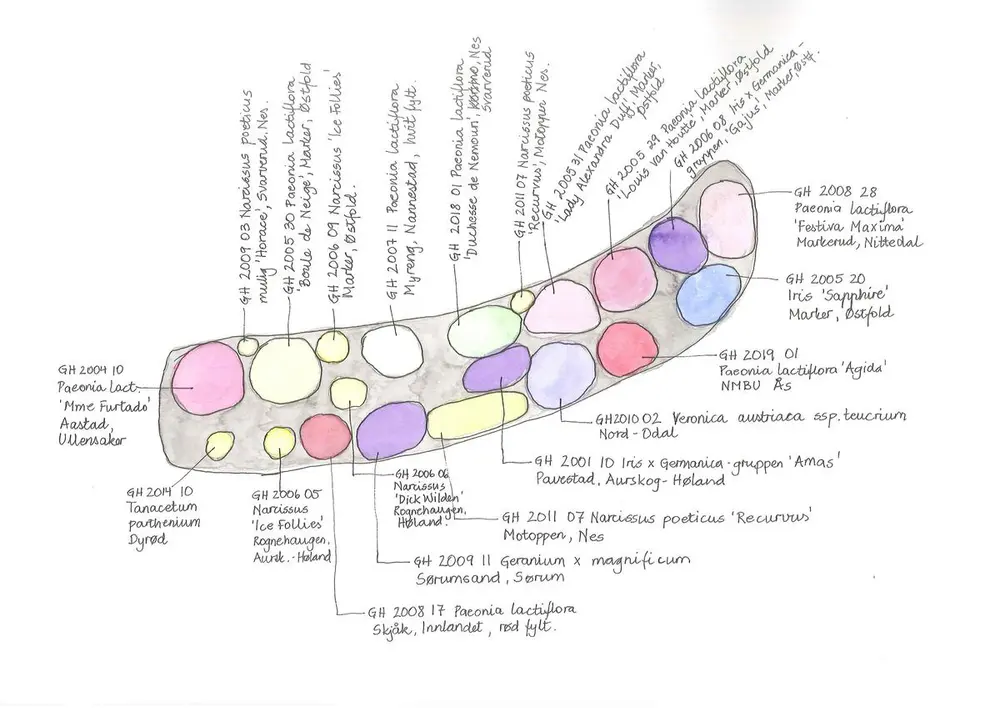 GH 2009 03 Narcissus poeticus
mulig 'Horace', Svarverud, Nes.
GH 2005 30 Paeonia lactiflora
'Boule de Neige', Marker, Østfold
GH 2006 09 Narcissus 'Ice Follies'
Marker, Østfold.
GH 2007 11 Paeonia lactiflora
Myreng, Nannestad, hvit fylt.
GH 2018 01 Paeonia lactiflora
'Duchesse de Nemour', Nes
Svarverud
GH 2011 07 Narcissus poeticus
'Recurvus', Motoppen Nes.
GH 2005 31 Paeonia lactiflora
'Lady Alexandra Duff', Marker,
Østfold
GH 2005 29 Paeonia lactiflora
'Louis van Houtte', Marker, Østfold
GH 2006 08 Iris x Germanica-
gruppen, 'Gajus', Marker, Østf.
GH 2008 28
Paeonia lactiflora
'Festiva Maxima'
Markerud, Nittedal
GH 2005 20
Iris 'Sapphire'
Marker, Østfold
GH 2019 01
Paeonia lactiflora 'Agida'
NMBU Ås
GH 2010 02 Veronica austriaca ssp. teucrium
Nord-Odal
GH 2001 10 Iris x Germanica-gruppen 'Amas'
Pavestad, Aurskog-Høland
GH 2011 07 Narcissus poeticus 'Recurvus'
Motoppen, Nes
GH 2009 11 Geranium x magnificum
Sørumsand, Sørum
GH 2008 17 Paeonia lactiflora
Skjåk, Innlandet, rød fylt.
GH 2006 06
Narcissus
'Dick Wilden'
Rognehaugen,
Høland.
GH 2006 05
Narcissus
'Ice Follies'
Rognehaugen,
Aursk.-Høland
GH 2014 10
Tanacetum
parthenium
Dyrød
GH 2004 10
Paeonia lact.
'Mme Furtado'
Aastad,
Ullensaker